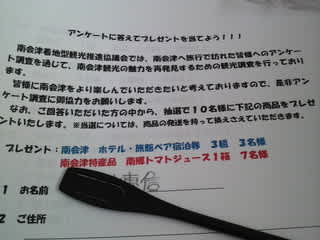 アンケートに答えてプレゼントを当てよう！！！
南会津着地型観光推進協議会では、南会津へ旅行で訪れた皆様へのアンケー
ト調査を通じて、南会津観光の魅力を再発見するための観光調査を行っており
ます。
皆様に南会津をより楽しんでいただきたいと考えておりますので、是非アン
ケート調査に御協力をお願いします。
なお、ご回答いただいた方の中から、抽選で１０名様に下記の商品をプレゼ
ントいたします。※当選については、商品の発送を持って換えさせていただきます。
プレゼント：南会津 ホテル・旅館ペア宿泊券 3組 3名様
南会津特産品 南郷トマトジュース１箱 7名様
1 お名前
信
2 ご住所